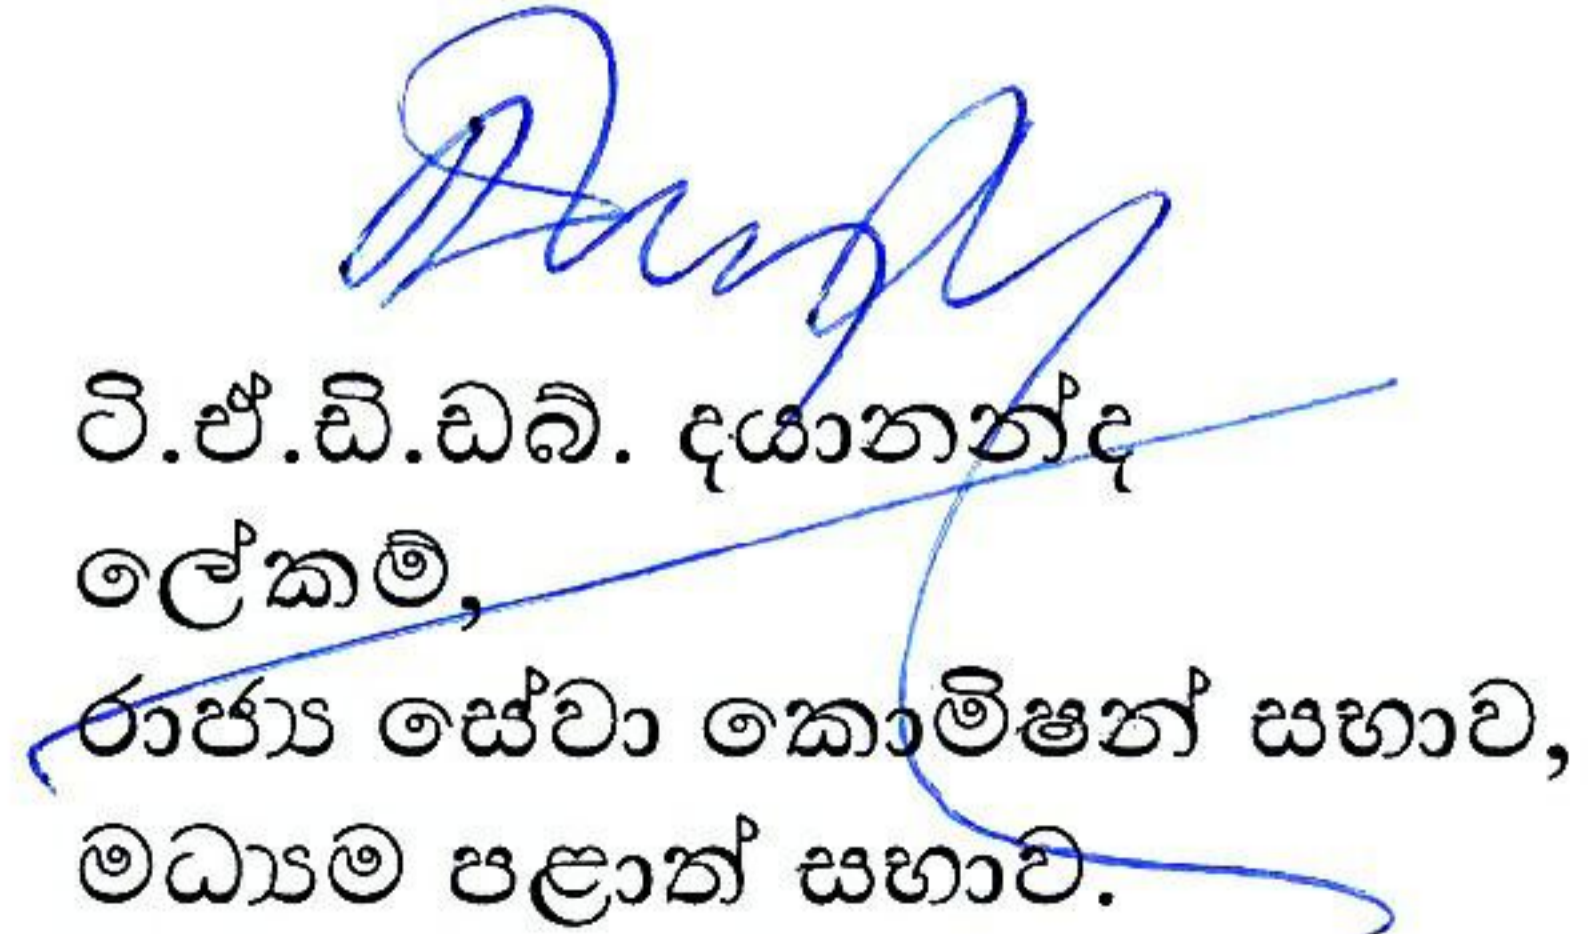 ටී.ඒ.ඩී.ඩබ්. දයානන්ද
ලේකම්,
රාජ්‍ය සේවා කොමිෂන් සභාව,
මධ්‍යම පළාත් සභාව.